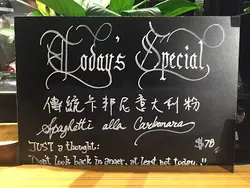 Today's Special
傳統卡邦尼意大利粉
Spaghetti alla Carbonara
$78
JUST a thought:
"Don't look back in anger, at least not today."